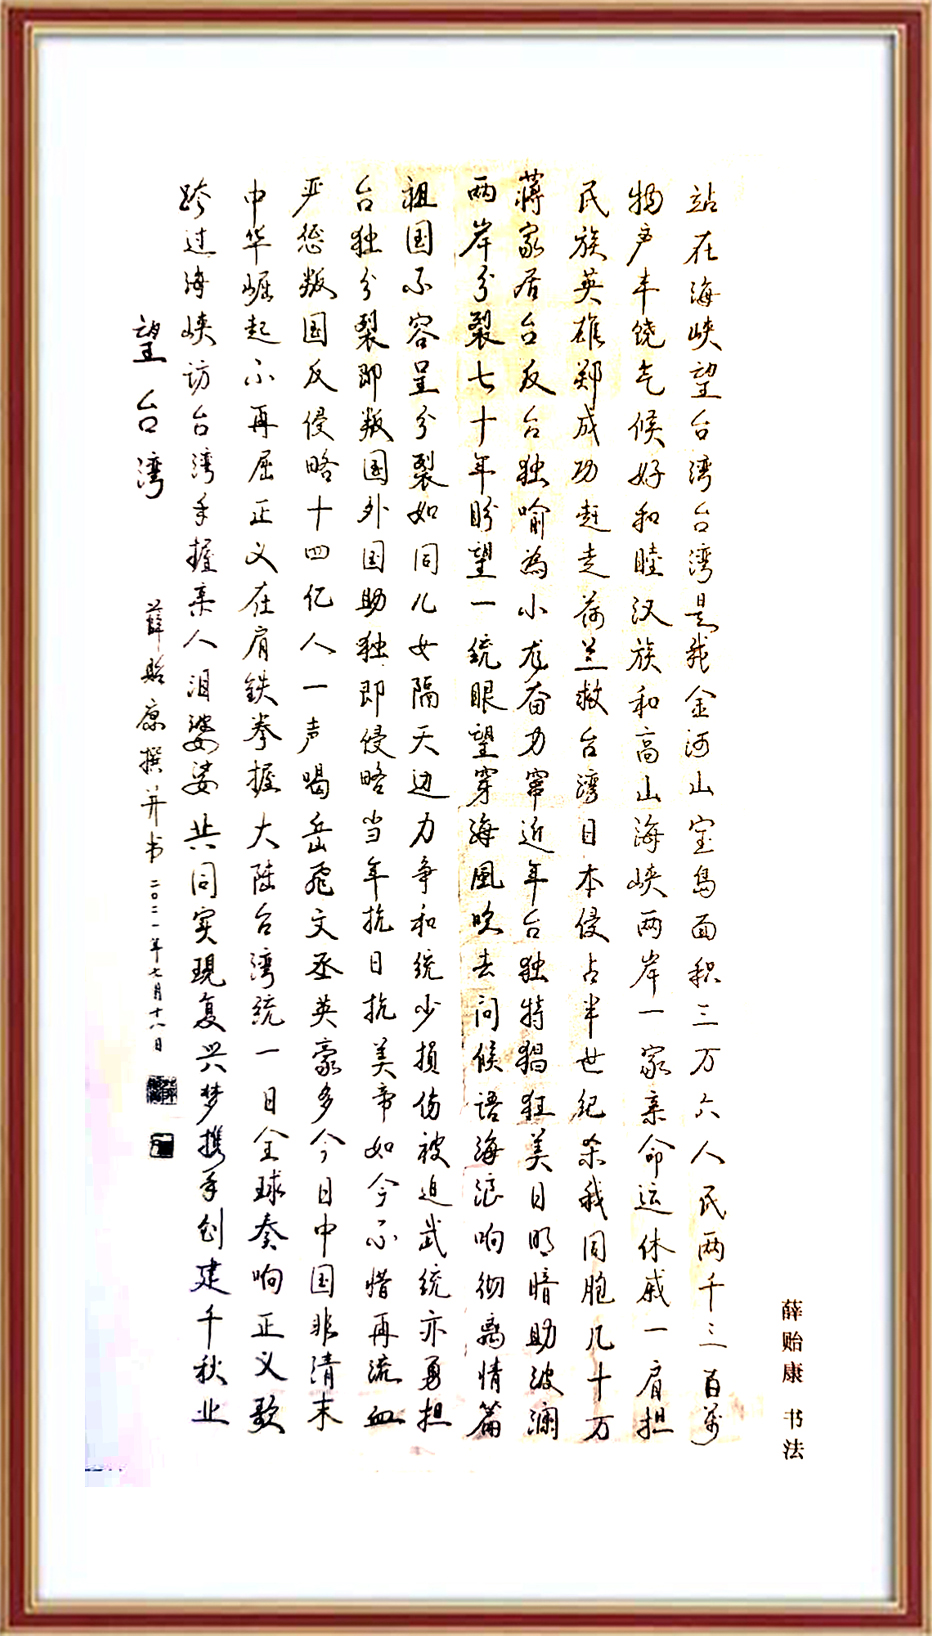 站在海峡望台湾台湾是我金河山宝岛面积三万六人民两千三百万
物产丰饶气候好和睦汉族和高山海峡两岸一家亲命运休戚一肩担
民族英雄郑成功赶走荷兰救台湾日本侵占半世纪杀我同胞几十万
蒋家居台反台独喻为小龙奋力窜近年台独特猖狂美日明暗助波澜
两岸分裂七十年盼望一统眼望穿海风吹去问候语海浪响彻离情篇
祖国不容呈分裂如同儿女隔天边力争和统少损伤被迫武统亦勇担
台独分裂即叛国外国助独即侵略当年抗日抗美帝如今不惜再流血
严惩叛国反侵略十四亿人一声喝岳飞文丞英豪多今日中国非清末
中华崛起不再屈正义在肩铁拳握大陆台湾统一日全球奏响正义歌
跨过海峡访台湾手握亲人泪婆娑共同实现复兴梦携手创建千秋业
望台湾
薛贻康撰并书二〇二一年七月十八日
薛贻康 书法